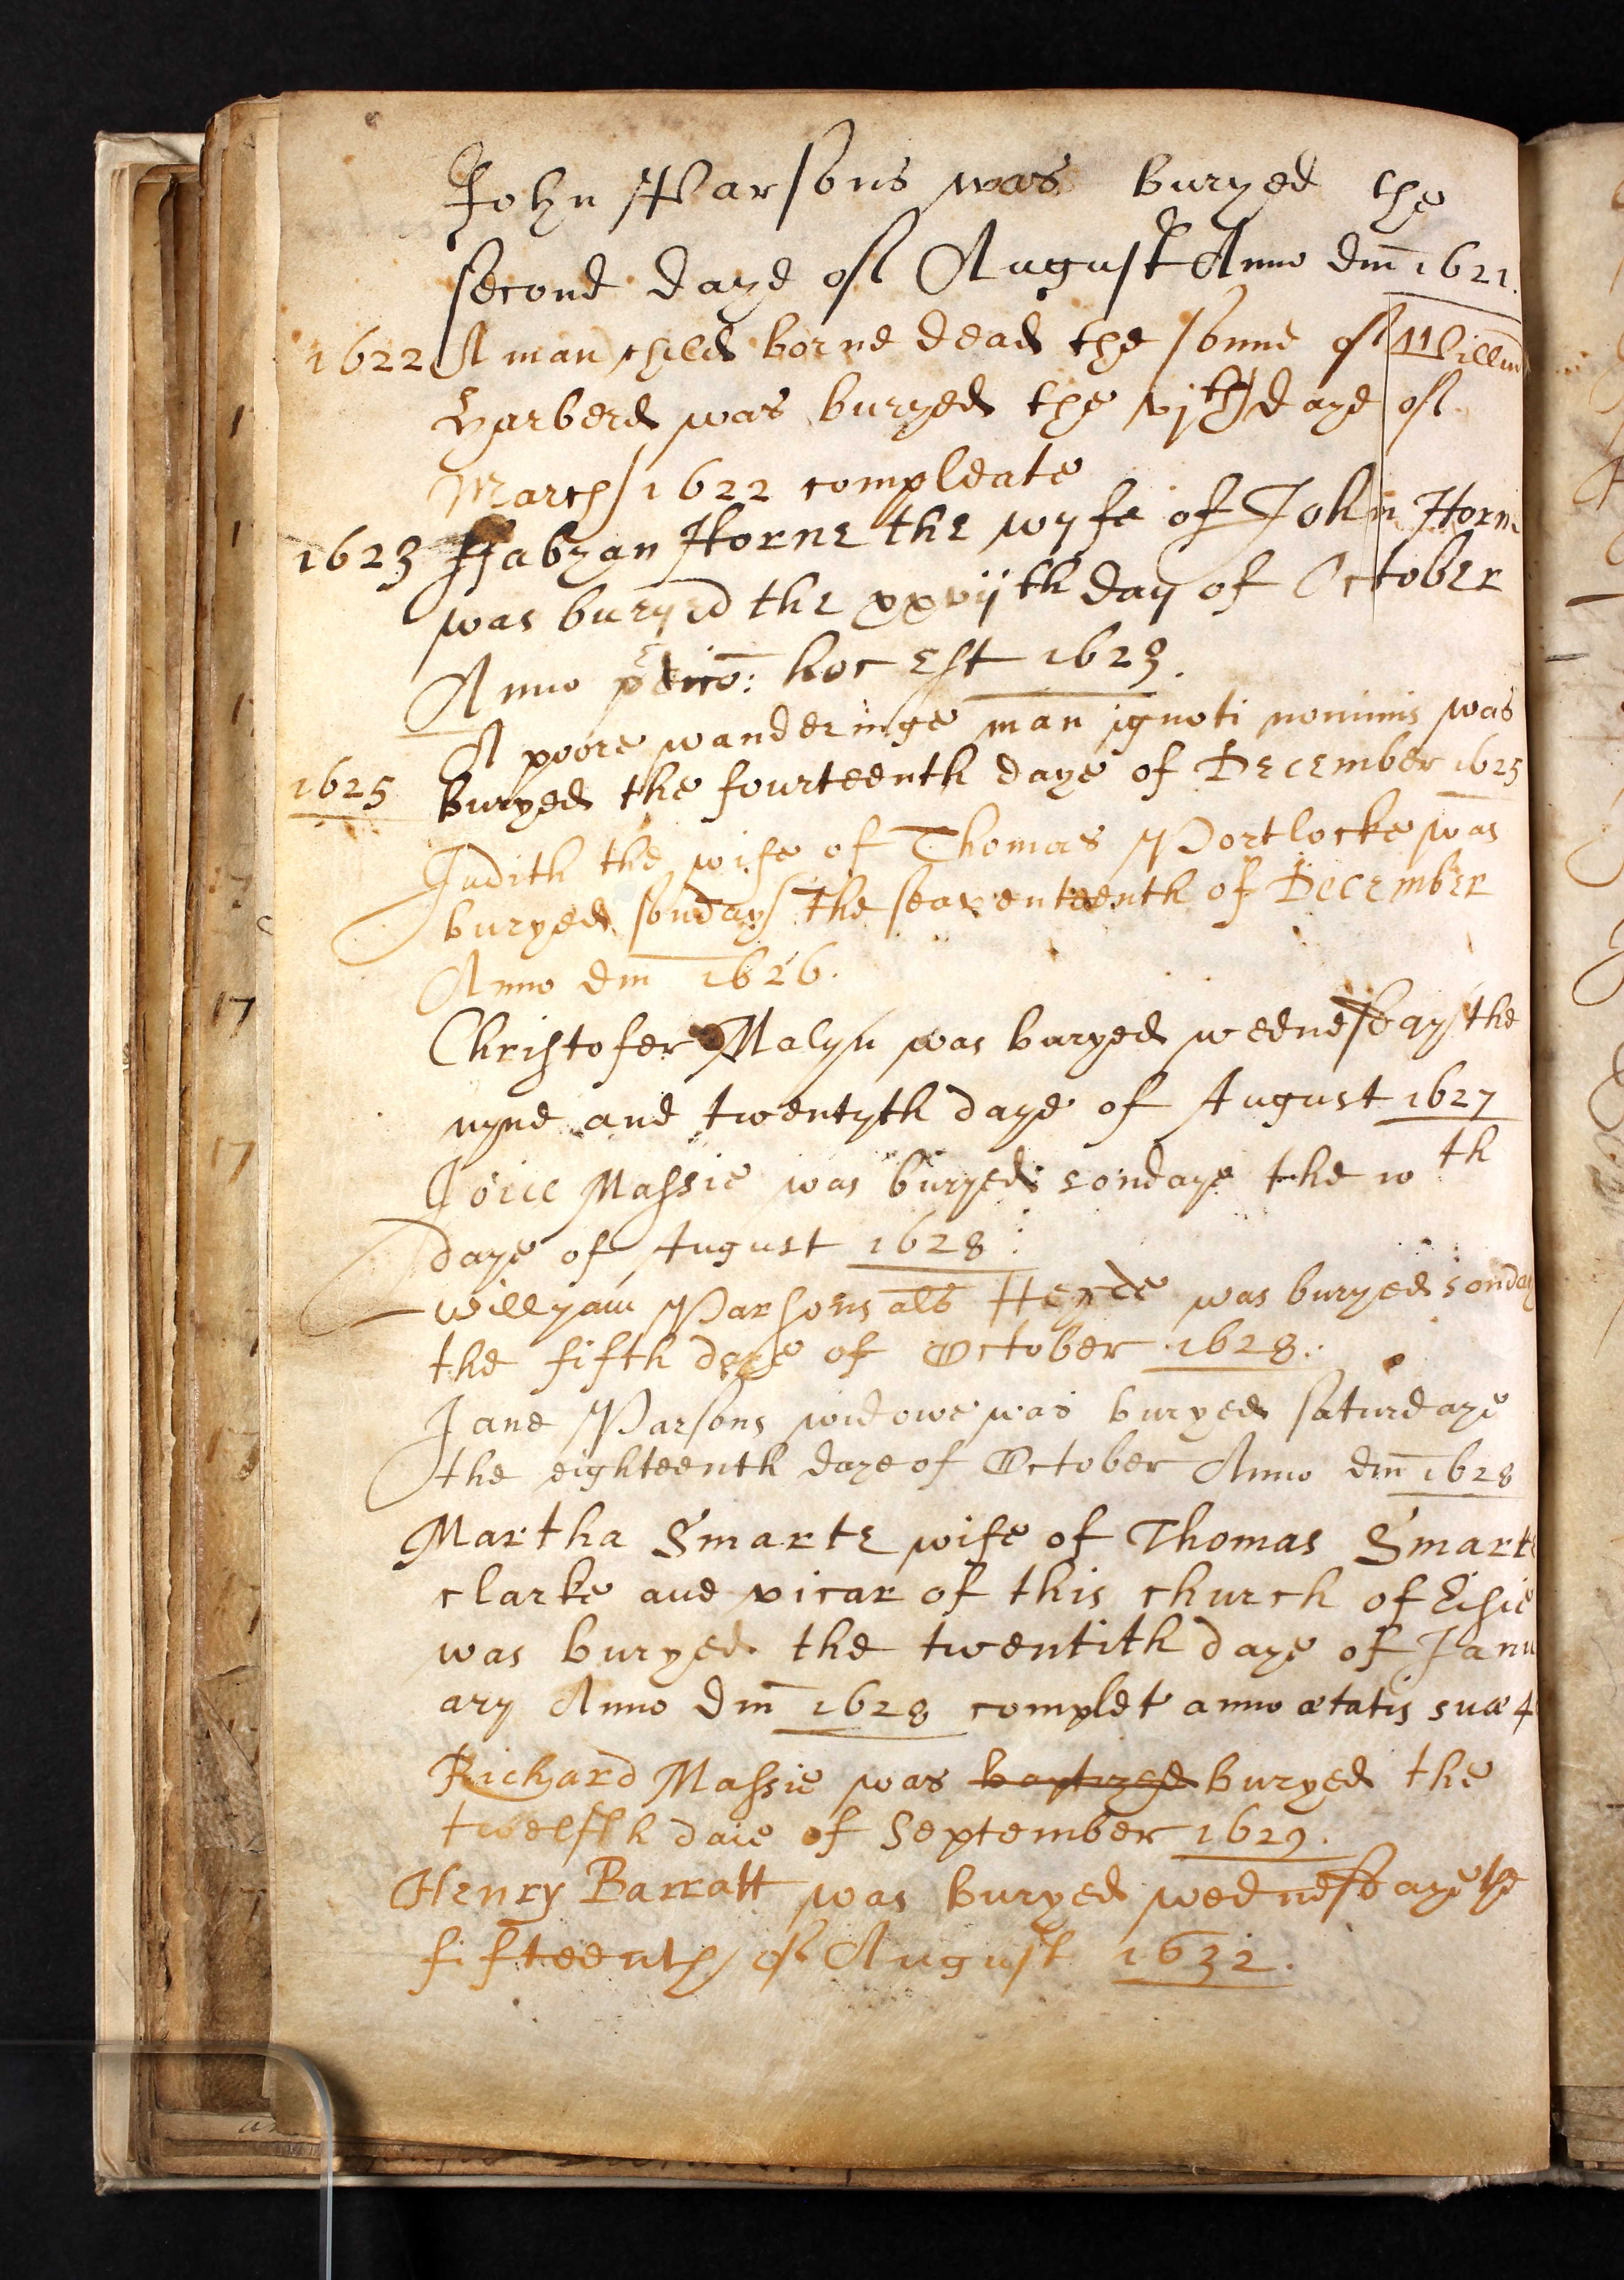 John Parsons was buryed the
second daye of August Anno dm̄ 1621.
1622 A man child borne dead the sonne of Willm̄
Harberd was buryed the vjth daye of
March 1622 compleate
1623 ffabyan Horne the wyfe of John Horne
was buryed the xxvijth day of October
Anno pdicō: hoc est 1623.
A poore wanderinge man ignoti nominis was
1625 buryed the fourteenth daye of December 1625
Judith the wife of Thomas Portlocke was
buryed sonday the seaventeenth of December
Anno dm̄ 1626.
Christofer Malyn was buryed wednesday the
nyne and twentyth daye of August 1627
Joice Massie was buryed sondaye the 10th
daye of August 1628:
willyam Parsons als̄ Hexde was buryed sonday
the fifth daye of October 1628:
Jane Parsons widowe was buryed saturdaye
the eighteenth daye of October Anno dm̄ 1628
Martha Smarte wife of Thomas Smarte
clarke and vicar of this church of Eisie
was buryed the twentith daye of Janu
ary Anno dm̄ 1628 complet anno ætatis suæ 4
Richard Massie was baptized buryed the
twelfth daie of September 1629.
Henry Barratt was buryed wednesdaye the
fifteenth of August 1632.